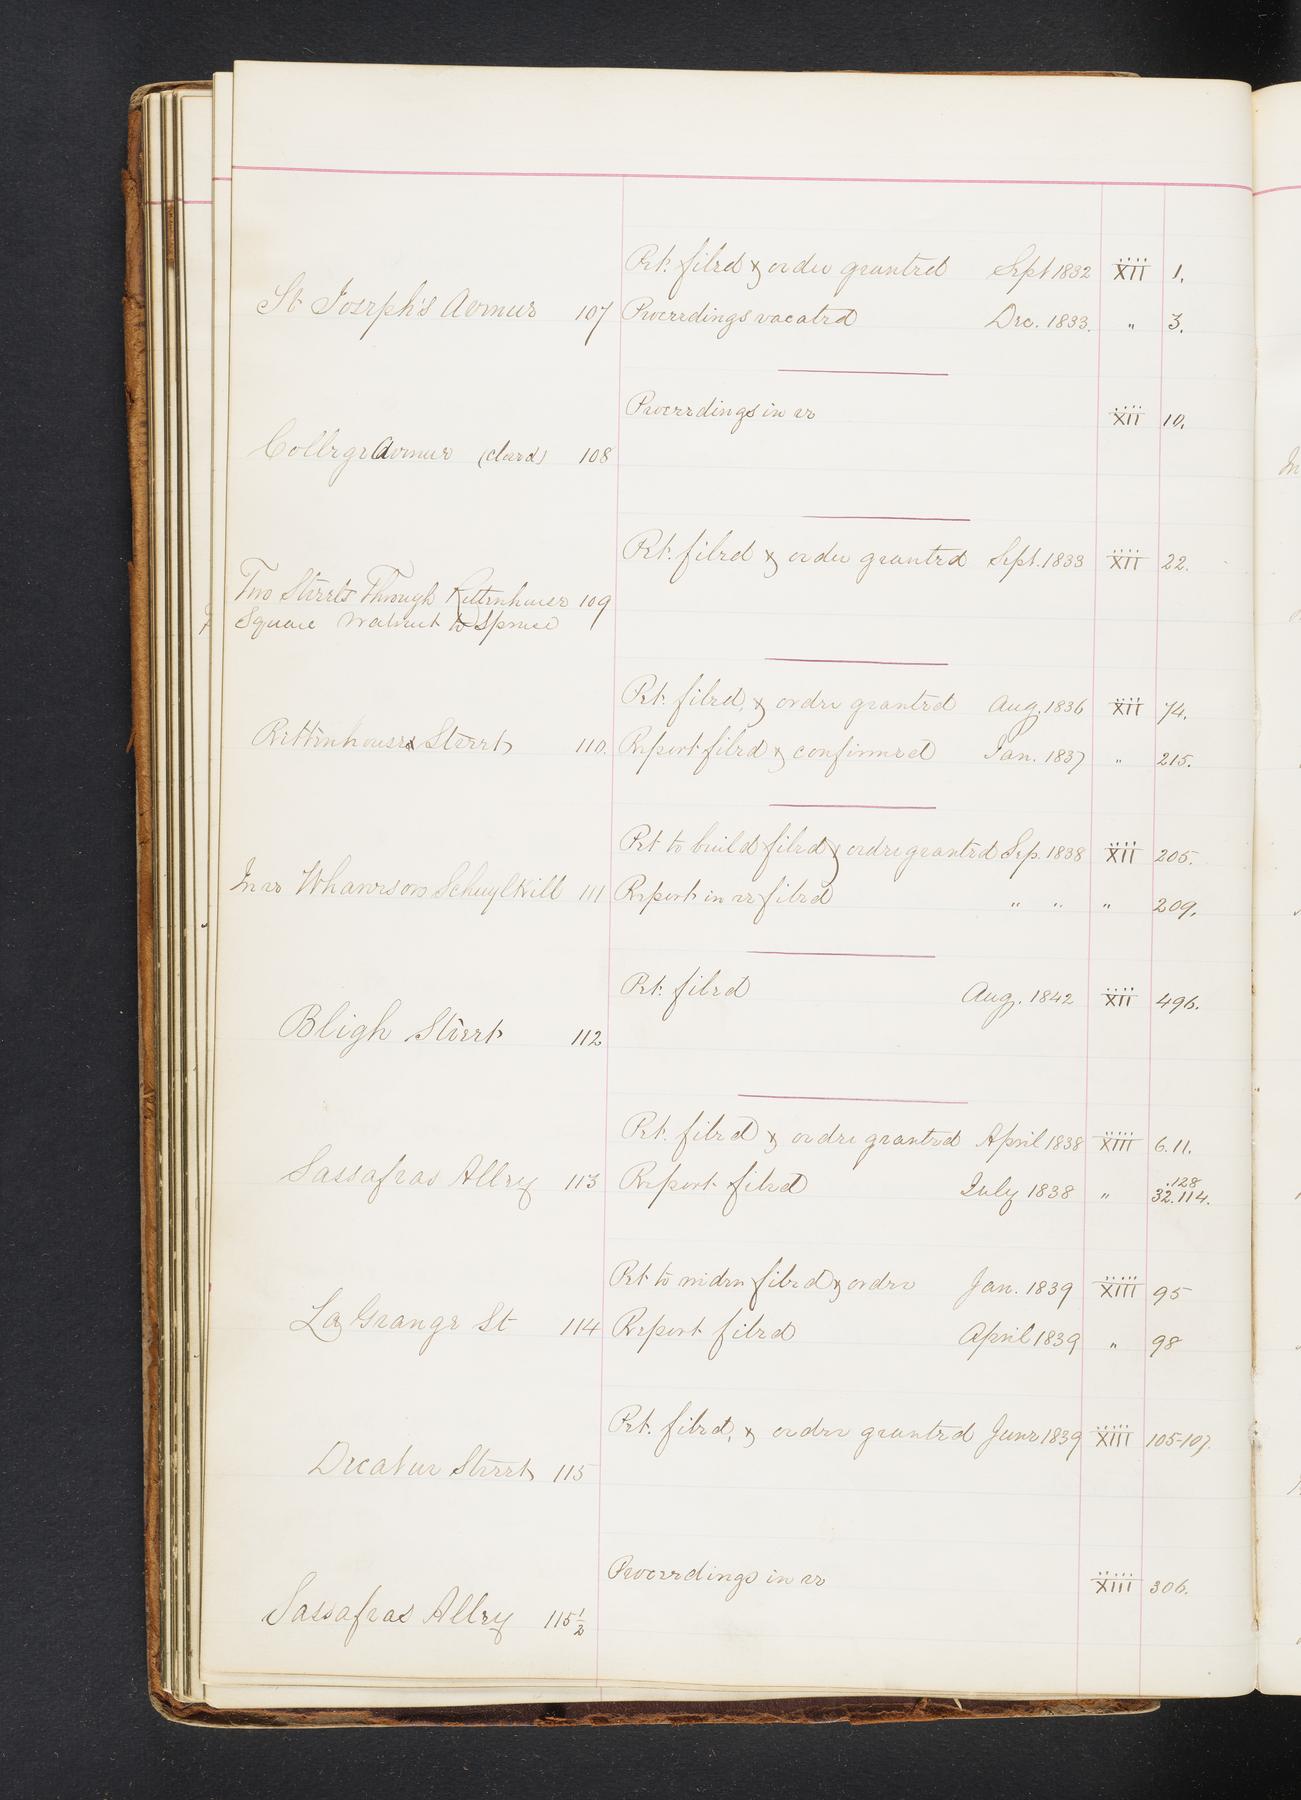 Pet. filed & order granted Sept 1832 XII 1.
St Joseph's Avenue 107 Proceedings vacated Dec. 1833. " 3.
Proceedings in re XII 10.
College Avenue (closed) 108
Pet. filed & order granted Sept. 1833 XII 22.
Two Streets Through Rittenhouse 109
Square Walnut to Spruce
Pet. filed, & order granted Aug. 1836 XII 74.
Rittenhouse Street 110. Report filed & confirmed Jan. 1837 " 215.
Pet to build filed & order granted Sep. 1838 XII 205.
In re Wharves on Schuylkill 111 Report in re filed " " " 209.
Pet. filed Aug. 1842 XII 496.
Bligh Street 112
Pet. filed & order granted April 1838 XIII 6.11.
Sassafras Alley 113 Report filed July 1838 " 32.114.
.128
Pet to widen filed & order Jan. 1839 XIII 95
La Grange St 114 Report filed April 1839 " 98
Pet. filed, & order granted June 1839 XIII 105-107.
Decatur Street 115
Proceedings in re XIII 306.
Sassafras Alley 115 1/2